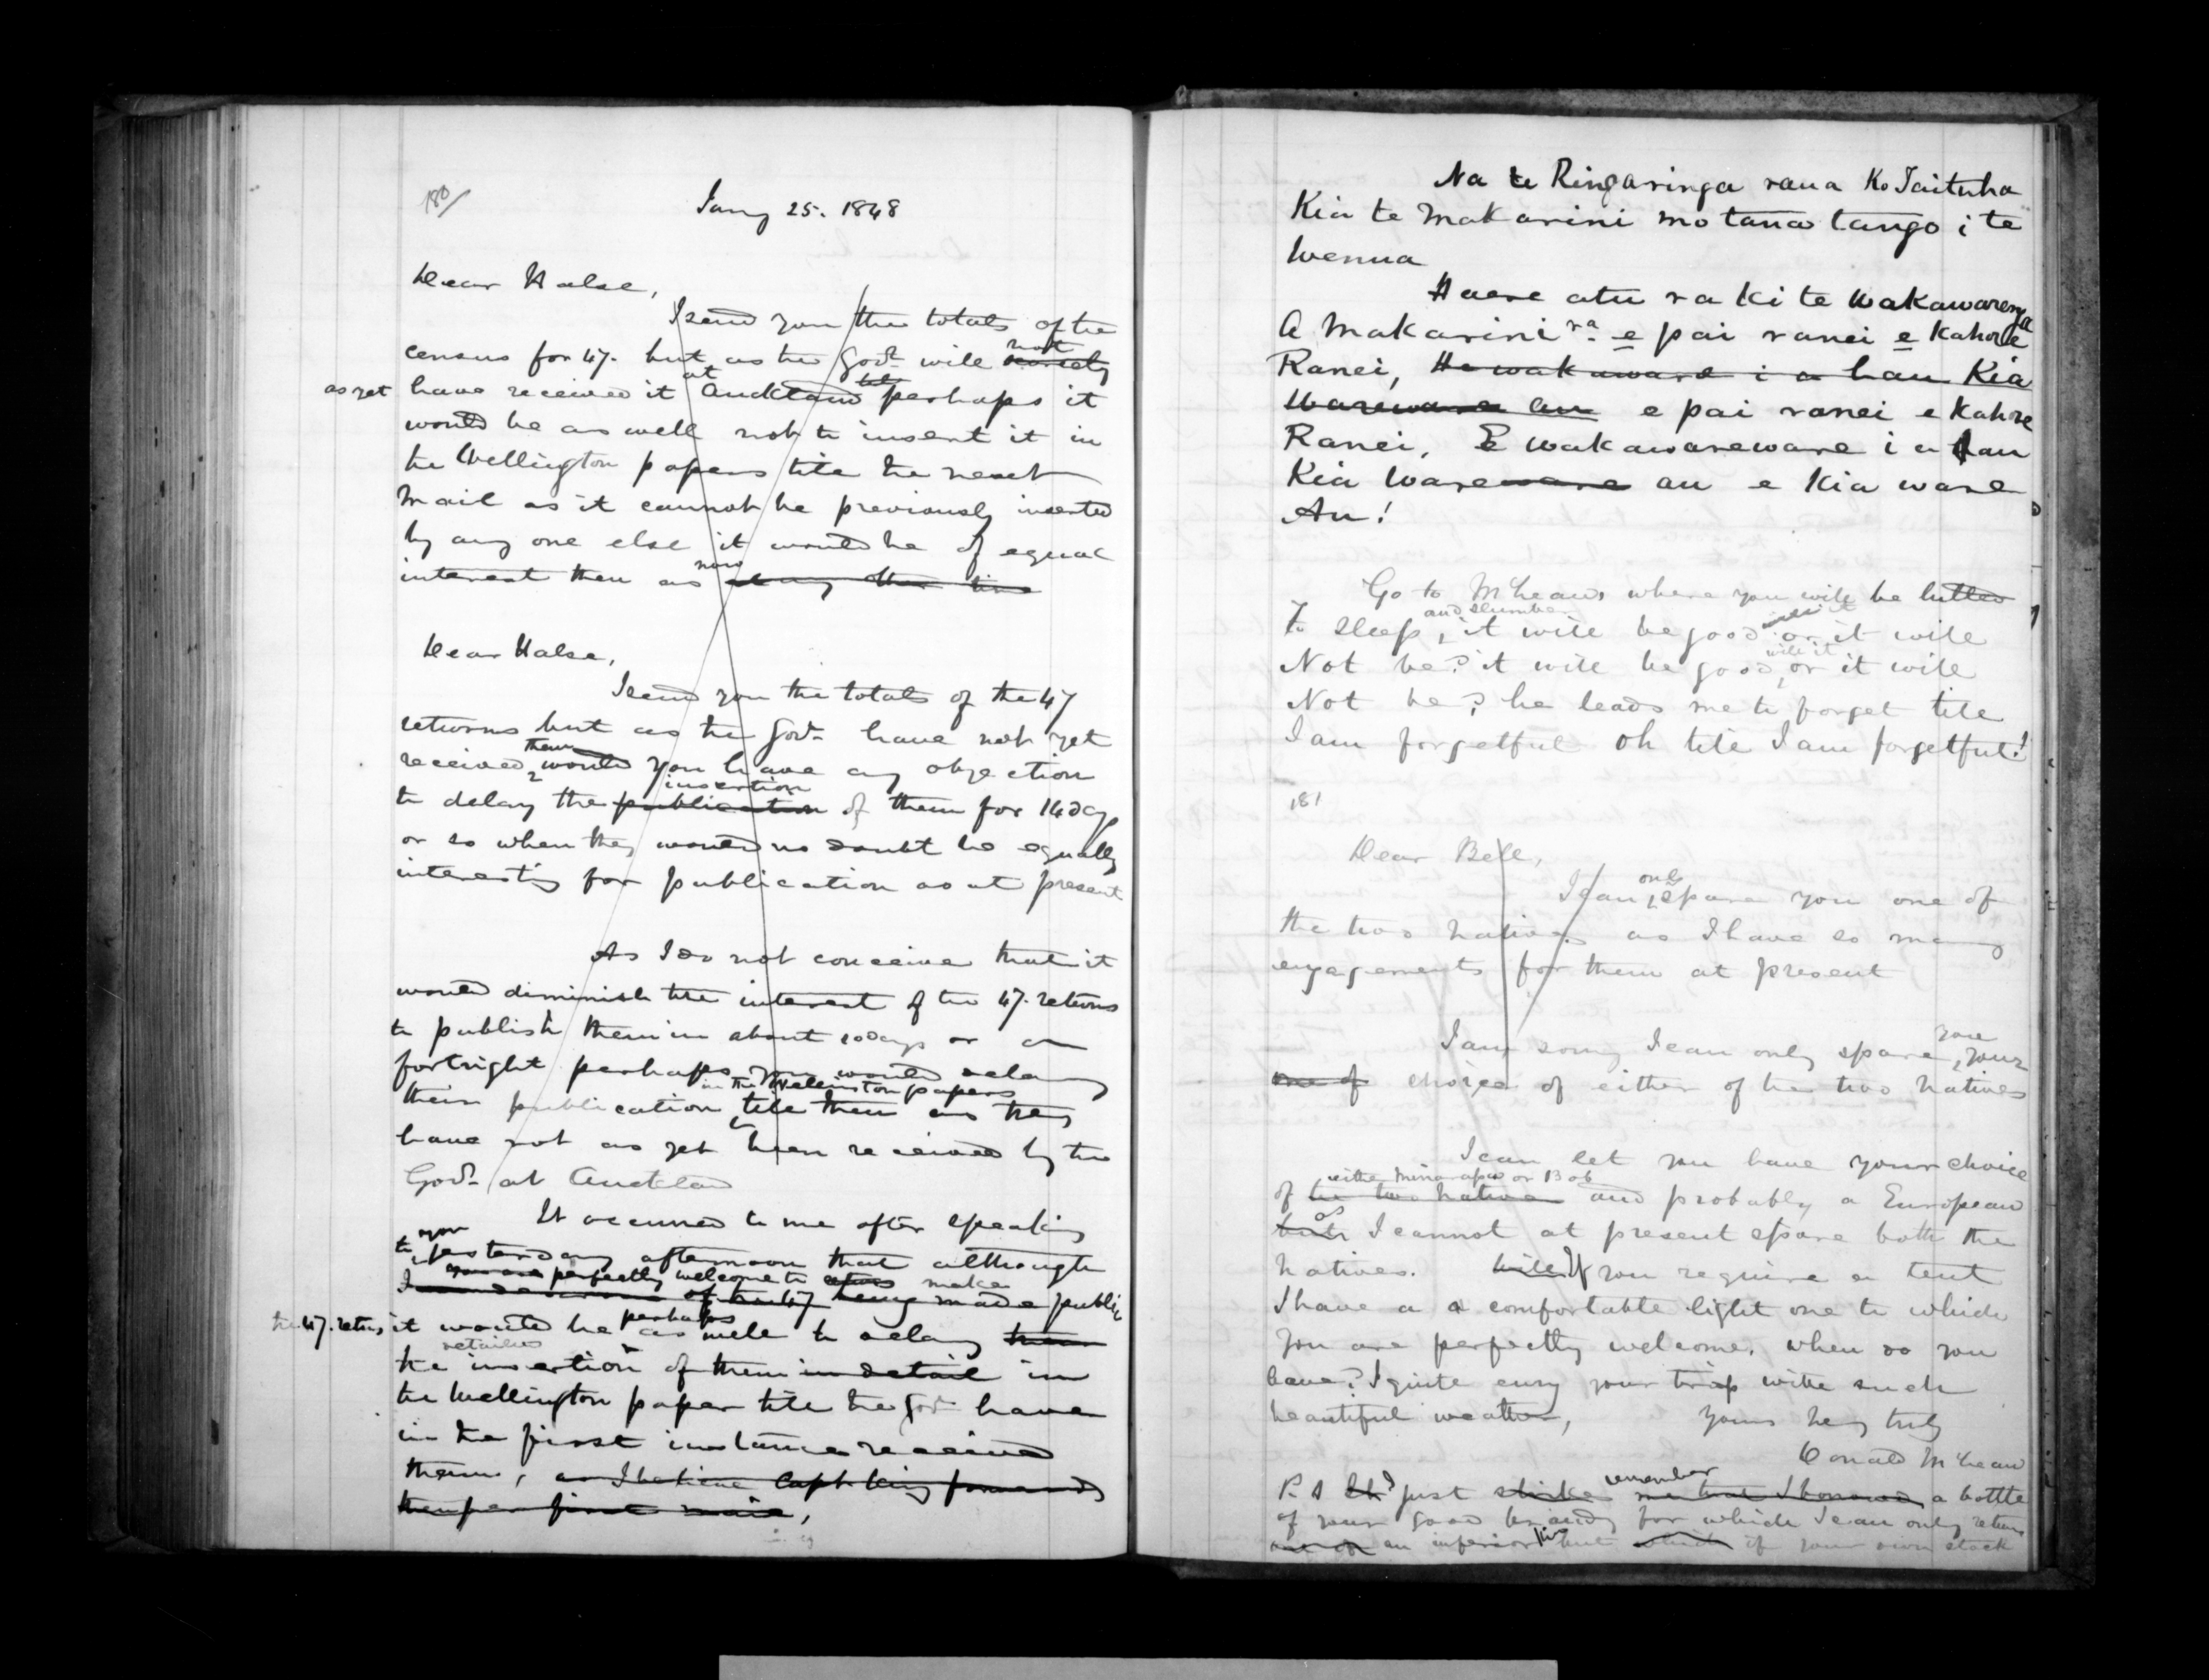 180/
Jany 25. 1848
Dear Halse,
I send you the totals of the
census for 47. but as the Govt. will not scarcely
as yet have received it at Auckland perhaps it
would be as well not to insert it in
the Wellington papers till the next
Mail as it cannot be previously inserted
by any one else it would be of equal
interest then as now
Dear Halse,
I send you the totals of the 47
returns but as the Govt. have not yet
received them would you have any objection
to delay the publication insertion of them for 14 days
or so when they would no doubt be equally
interesting for publication as at present
As I do not conceive that it
would diminish the interest of the 47. returns
to publish them in about 10 days or a
fortnight perhaps you would delay
their publication in the Wellington papers till then as they
have not as yet been received by the
Govt. at Auckland
It occurred to me after speaking
to you yesterday afternoon that although
you are perfectly welcome to make
I am desirous of the 47 being made public
the 47. returns it would be perhaps as well to delay them
the detailed insertion of them in detail in
the Wellington paper till the Govt. have
in the first instance received
them, as I believe Capt. King forwards
them per first mail,
Na te Ringaringa raua Ko Taituha
Kia te Makarini mo tana tango i te
Wenua
Haere atu ra ki te Wakawarenga
A Makarini ra. e pai ranei e Kahore
Ranei, He wakaware i a hau Kia
Wareware au e pai ranei e Kahore
Ranei, E wakawareware i a hau
Kia Wareware au e Kia ware
Au!
Go to McLeans where you will be lulled
To sleep, and slumber it will be good or will it it will
Not be? it will be good, or will it it will
Not be? he leads me to forget till
I am forgetful oh till I am forgetful!
181
Dear Bell,
I can only spare you one of
the two natives as I have so many
engagements for them at present
I am sorry I can only spare you, your
one of choice of either of the two natives
I can let you have your choice
of the two natives either or Bob and probably a European
but as I cannot at present spare both the
natives. will If you require a tent
I have a a comfortable light one to which
you are perfectly welcome. when do you
leave? I quite envy your trip with such
beautiful weather, Yours very truly
Donald McLean
P.S. just strikes me that I borrowed remember a bottle
of your good brandy for which I can only return
an inferior but which if your own stock